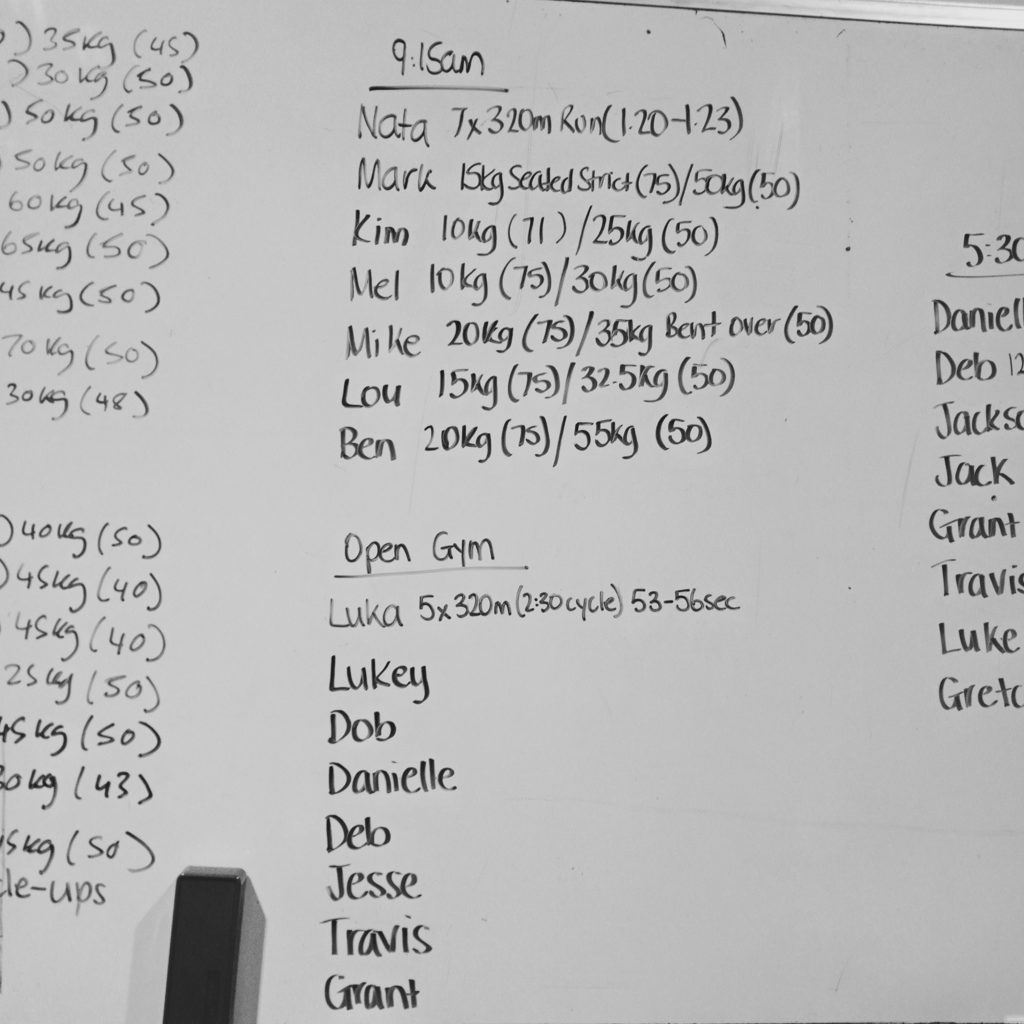 35kg (45)
30kg (50)
50kg (50)
50kg (50)
60kg (45)
65kg (50)
45kg (50)
70kg (50)
30kg (48)
40kg (50)
45kg (40)
45kg (40)
25kg (50)
45kg (50)
30kg (43)
5kg (50)
le-ups
9:15am
Nata 7x320m Run (1:20-1:23)
Mark 15kg Seated Strict (75)/50kg (50)
Kim 10kg (71)/25kg (50)
Mel 10kg (75)/30kg (50)
Mike 20kg (75)/35kg Bent over (50)
Lou 15kg (75)/32.5kg (50)
Ben 20kg (75)/55kg (50)
Open Gym
Luka 5x320m (2:30 cycle) 53-56sec
Lukey
Dob
Danielle
Deb
Jesse
Travis
Grant
5:30
Daniell
Deb 12
Jackso
Jack
Grant
Travis
Luke
Gretc